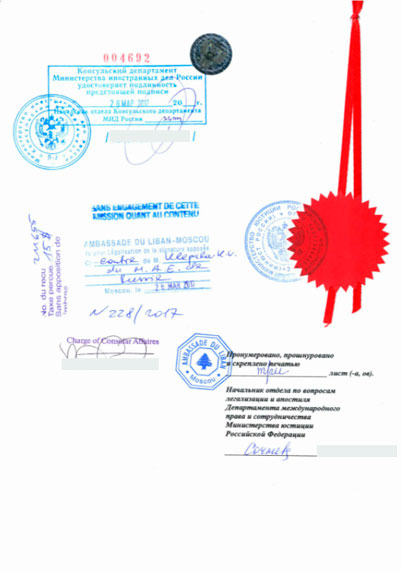 004692
Консульский департамент
Министерства иностранных дел России
удостоверяет подлинность
предстоящей подписи
26 МАР 2017 20 г.
отдела Консульского департамента
МИД России
SANS ENGAGEMENT DE CETTE
MISSION QUANT AU CONTENU
AMBASSADE DU LIBAN-MOSCOU
Légalisation de la signature apposée
contre de M.
du M.A.E. de
Russie
Moscou, le 28 MAR 2017
N 228/2017
No. du recu
Taxe percue 15 $
Sans apposition de
timbres
Charge of Consular Affaires
AMBASSADE DU LIBAN
MOSCOU
МИНИСТЕРСТВО ЮСТИЦИИ
Пронумеровано, прошнуровано
и скреплено печатью
три лист (-а, ов).
Начальник отдела по вопросам
легализации и апостиля
Департамента международного
права и сотрудничества
Министерства юстиции
Российской Федерации